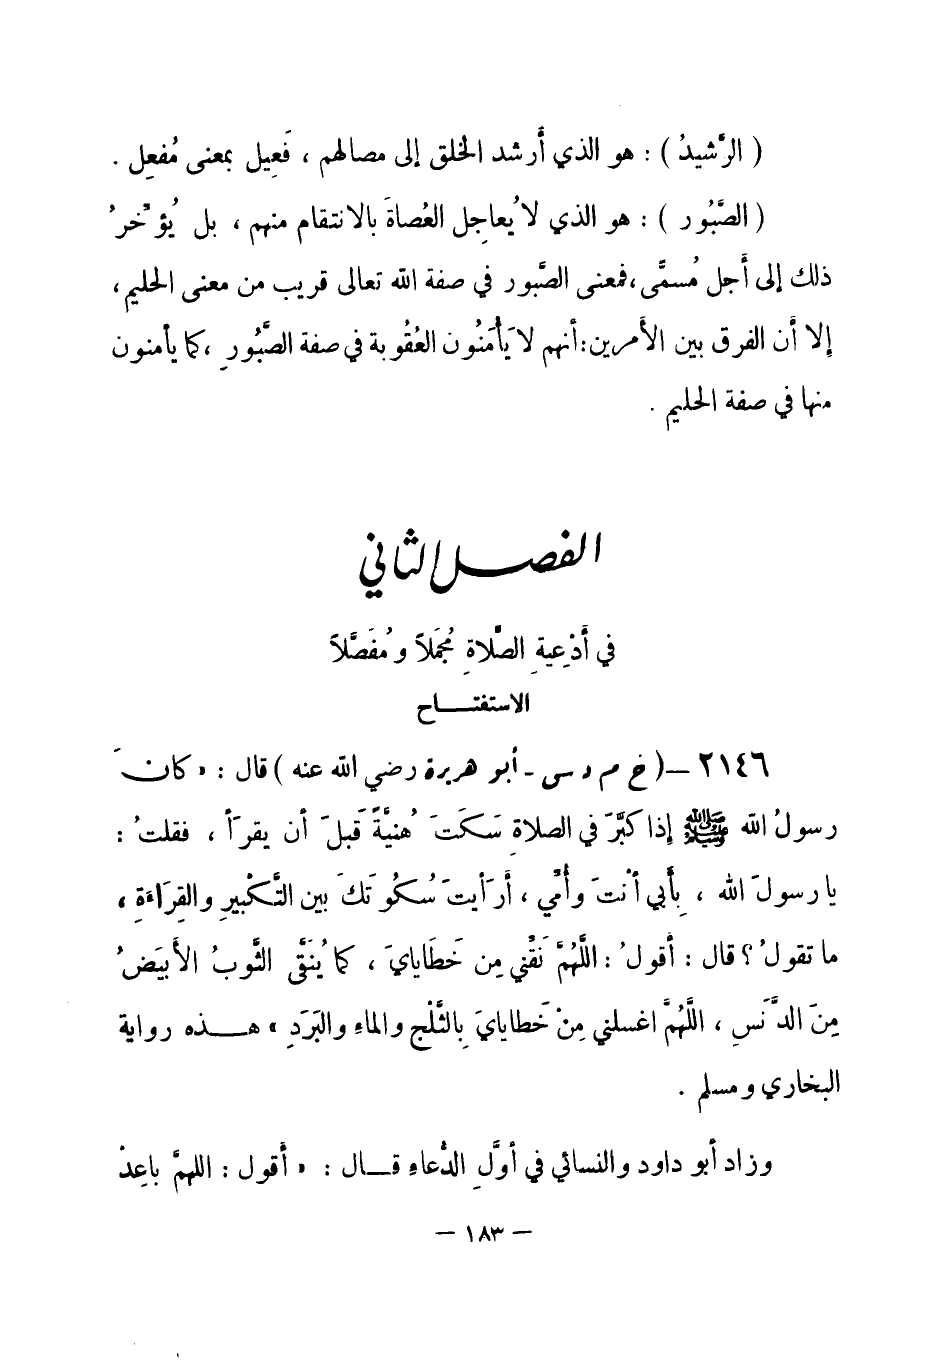 ( الرَّشيدُ ) : هو الذي أَرشد الخلق إلى مصالهم ، فَعِيل بمعنى مُفعِل .
( الصَّبُور ) : هو الذي لا يُعاجِل العُصاةَ بالانتقام منهم ، بل يُؤَخّرُ
ذلك إلى أَجل مُسمَّى ،فمعنى الصَّبور في صفة الله تعالى قريب من معنى الحليم ،
إلا أن الفرق بين الأَمرين:أنهم لا يَأمَنُون العُقُوبة في صفة الصَّبُورِ ،كما يأمنون
منها في صفة الحليم .
الفصل الثاني
في أَدْعِيةِ الصَّلاةِ مُجمَلاً ومُفَصَّلاً
الاستفتـــاح
٢١٤٦ – ( خ م د س - أبو هريرة رضي الله عنه ) قال : « كانَ
رسولُ الله ﷺ إذا كبَّرَ في الصلاةِ سَكَتَ هُنيَّةً قَبلَ أن يقرَأ ، فقلتُ :
يا رسولَ الله ، بِأَبي أنْتَ وأُمِّي ، أَرَأيتَ سُكُوتَكَ بين التَّكْبيرِ والقِرَاءَةِ ،
ما تقولُ ؟ قال : أَقولُ : اللَّهُمَّ نَقِّني مِن خَطَايايَ ، كما يُنَقَّى الثَّوبُ الأَبيَضُ
مِنَ الدَّنَسِ ، اللَّهُمَّ اغسلني مِنْ خَطايايَ بِالثَّلْجِ والماءِ والبَرَدِ » هـــذه رواية
البخاري ومسلم .
وزاد أبو داود والنسائي في أوَّلِ الدُّعاءِ قـــال : « أَقول : اللهمَّ باعِدْ
– ١٨٣ –